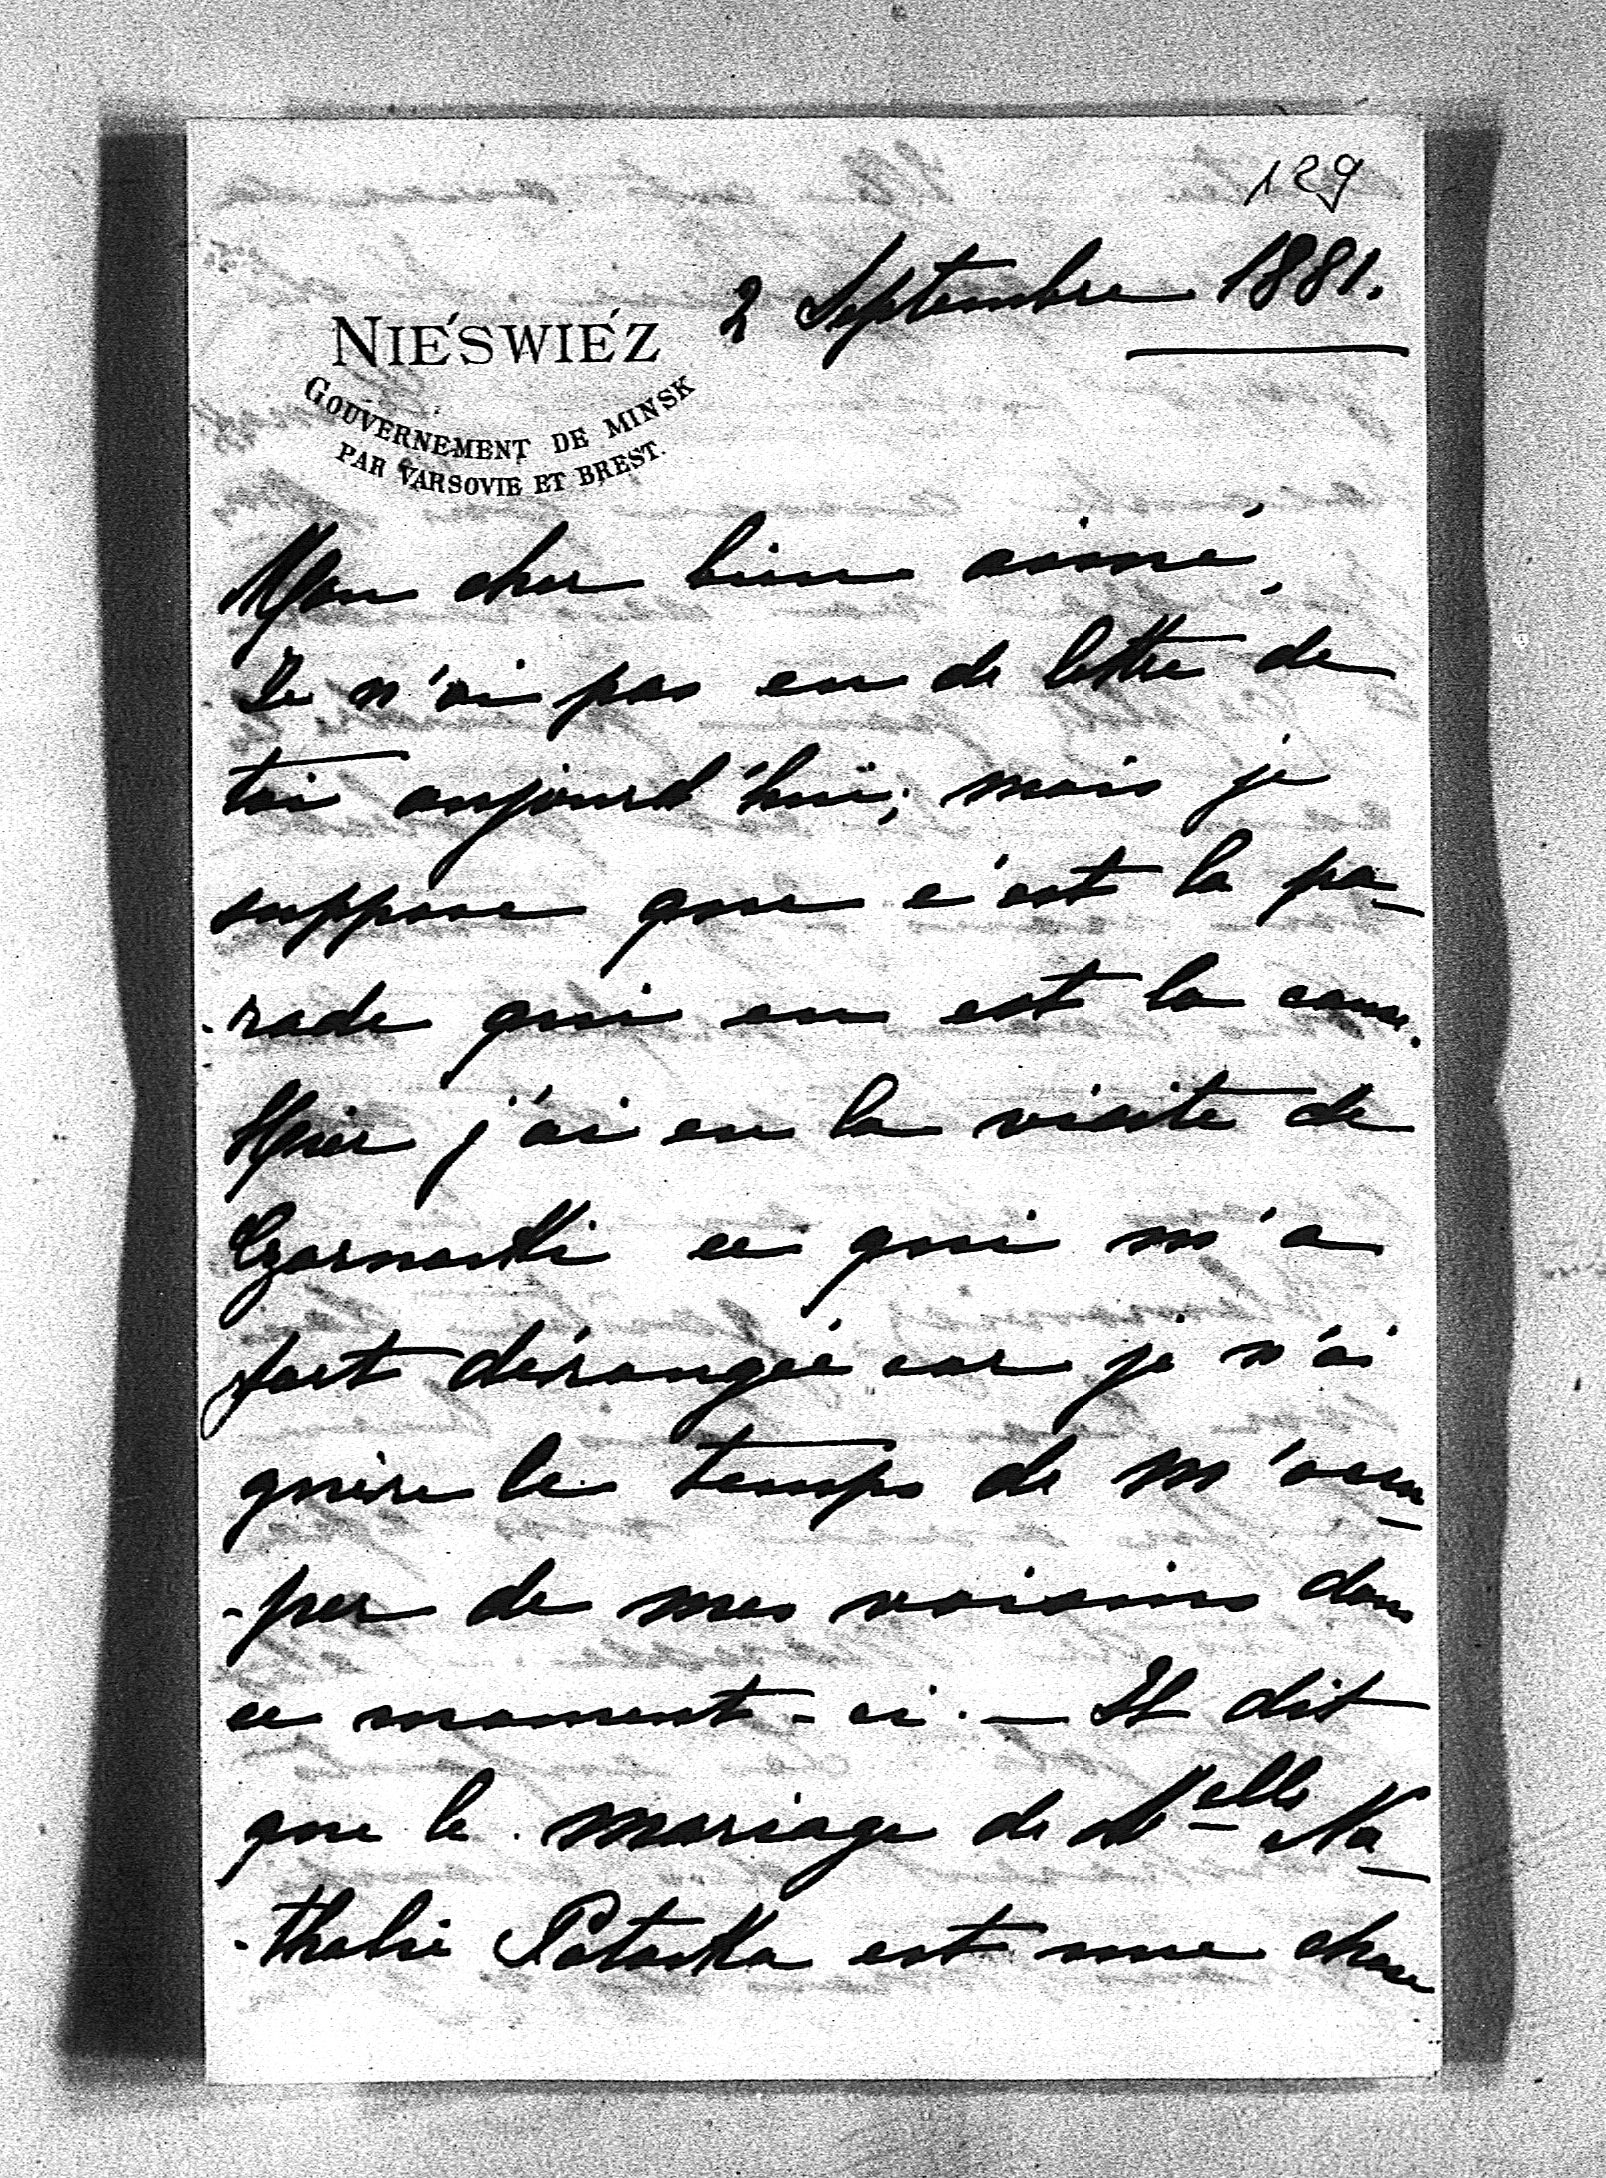 129
2 Septembre 1881.
NIÉSWIÉZ
GOUVERNEMENT DE MINSK
PAR VARSOVIE ET BREST.
Mon cher bien aimé,
Je n'ai pas eu de lettre de
toi aujourd'hui, mais je
suppose que c'est la pa-
-rade qui en est la cause.
Hier j'ai eu la visite de
Czarnocki ce qui m'a
fort dérangée car je n'ai
guère le temps de m'occu-
-per de mes voisins dans
ce moment-ci. — Il dit
que le mariage de Melle Na-
-thalie Potocka est une chose